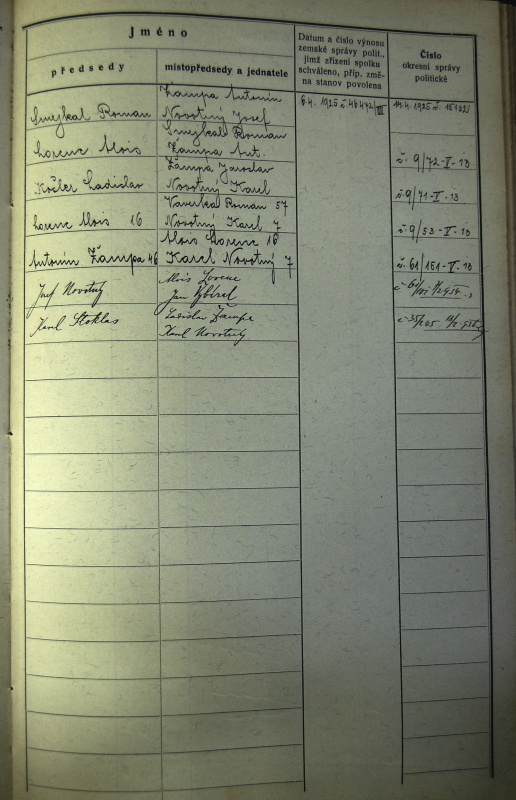 Jméno
předsedy
místopředsedy a jednatele
Datum a číslo výnosu
zemské správy polit.,
jímž zřízení spolku
schváleno, příp. změ-
na stanov povolena
Číslo
okresní správy
politické
Žampa Antonín
Smejkal Roman Novotný Josef 6.4. 1925 č. 14.4. 1925 č.
Smejkal Roman
Lorenc Alois Žampa Ant. č. 9/72-V-13
Žampa Jaroslav
Kočler Ladislav Novotný Karel č. 9/71-V-13
Vaverka Roman 57
Lorenc Alois 16 Novotný Karel 7 č. 9/53-V-13
Alois Lorenc 16
Antonín Žampa 46 Karel Novotný 7 č. 61/151-V-13
Alois Lorenc
Josef Novotný Jan Výbíral
Ladislav Žampa
Karel Stoklas
Karel Novotný